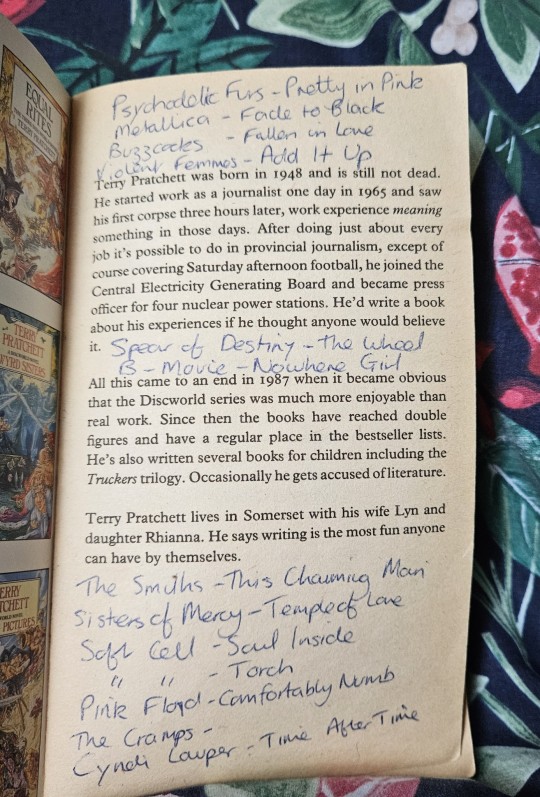 EQUAL
RITES
TERRY PRATCHETT
TERRY
PRATCHETT
WYRD SISTERS
PICTURES
Psychodelic Furs - Pretty in Pink
Metallica - Fade to Black
Buzzcocks - Fallen in Love
Violent Femmes - Add It Up
Terry Pratchett was born in 1948 and is still not dead.
He started work as a journalist one day in 1965 and saw
his first corpse three hours later, work experience meaning
something in those days. After doing just about every
job it's possible to do in provincial journalism, except of
course covering Saturday afternoon football, he joined the
Central Electricity Generating Board and became press
officer for four nuclear power stations. He'd write a book
about his experiences if he thought anyone would believe
it. Spear of Destiny - The Wheel
B - Movie - Nowhere Girl
All this came to an end in 1987 when it became obvious
that the Discworld series was much more enjoyable than
real work. Since then the books have reached double
figures and have a regular place in the bestseller lists.
He's also written several books for children including the
Truckers trilogy. Occasionally he gets accused of literature.
Terry Pratchett lives in Somerset with his wife Lyn and
daughter Rhianna. He says writing is the most fun anyone
can have by themselves.
The Smiths - This Charming Man
Sisters of Mercy - Temple of Love
Soft Cell - Soul Inside
" " - Torch
Pink Floyd - Comfortably Numb
The Cramps -
Cyndi Lauper - Time After Time